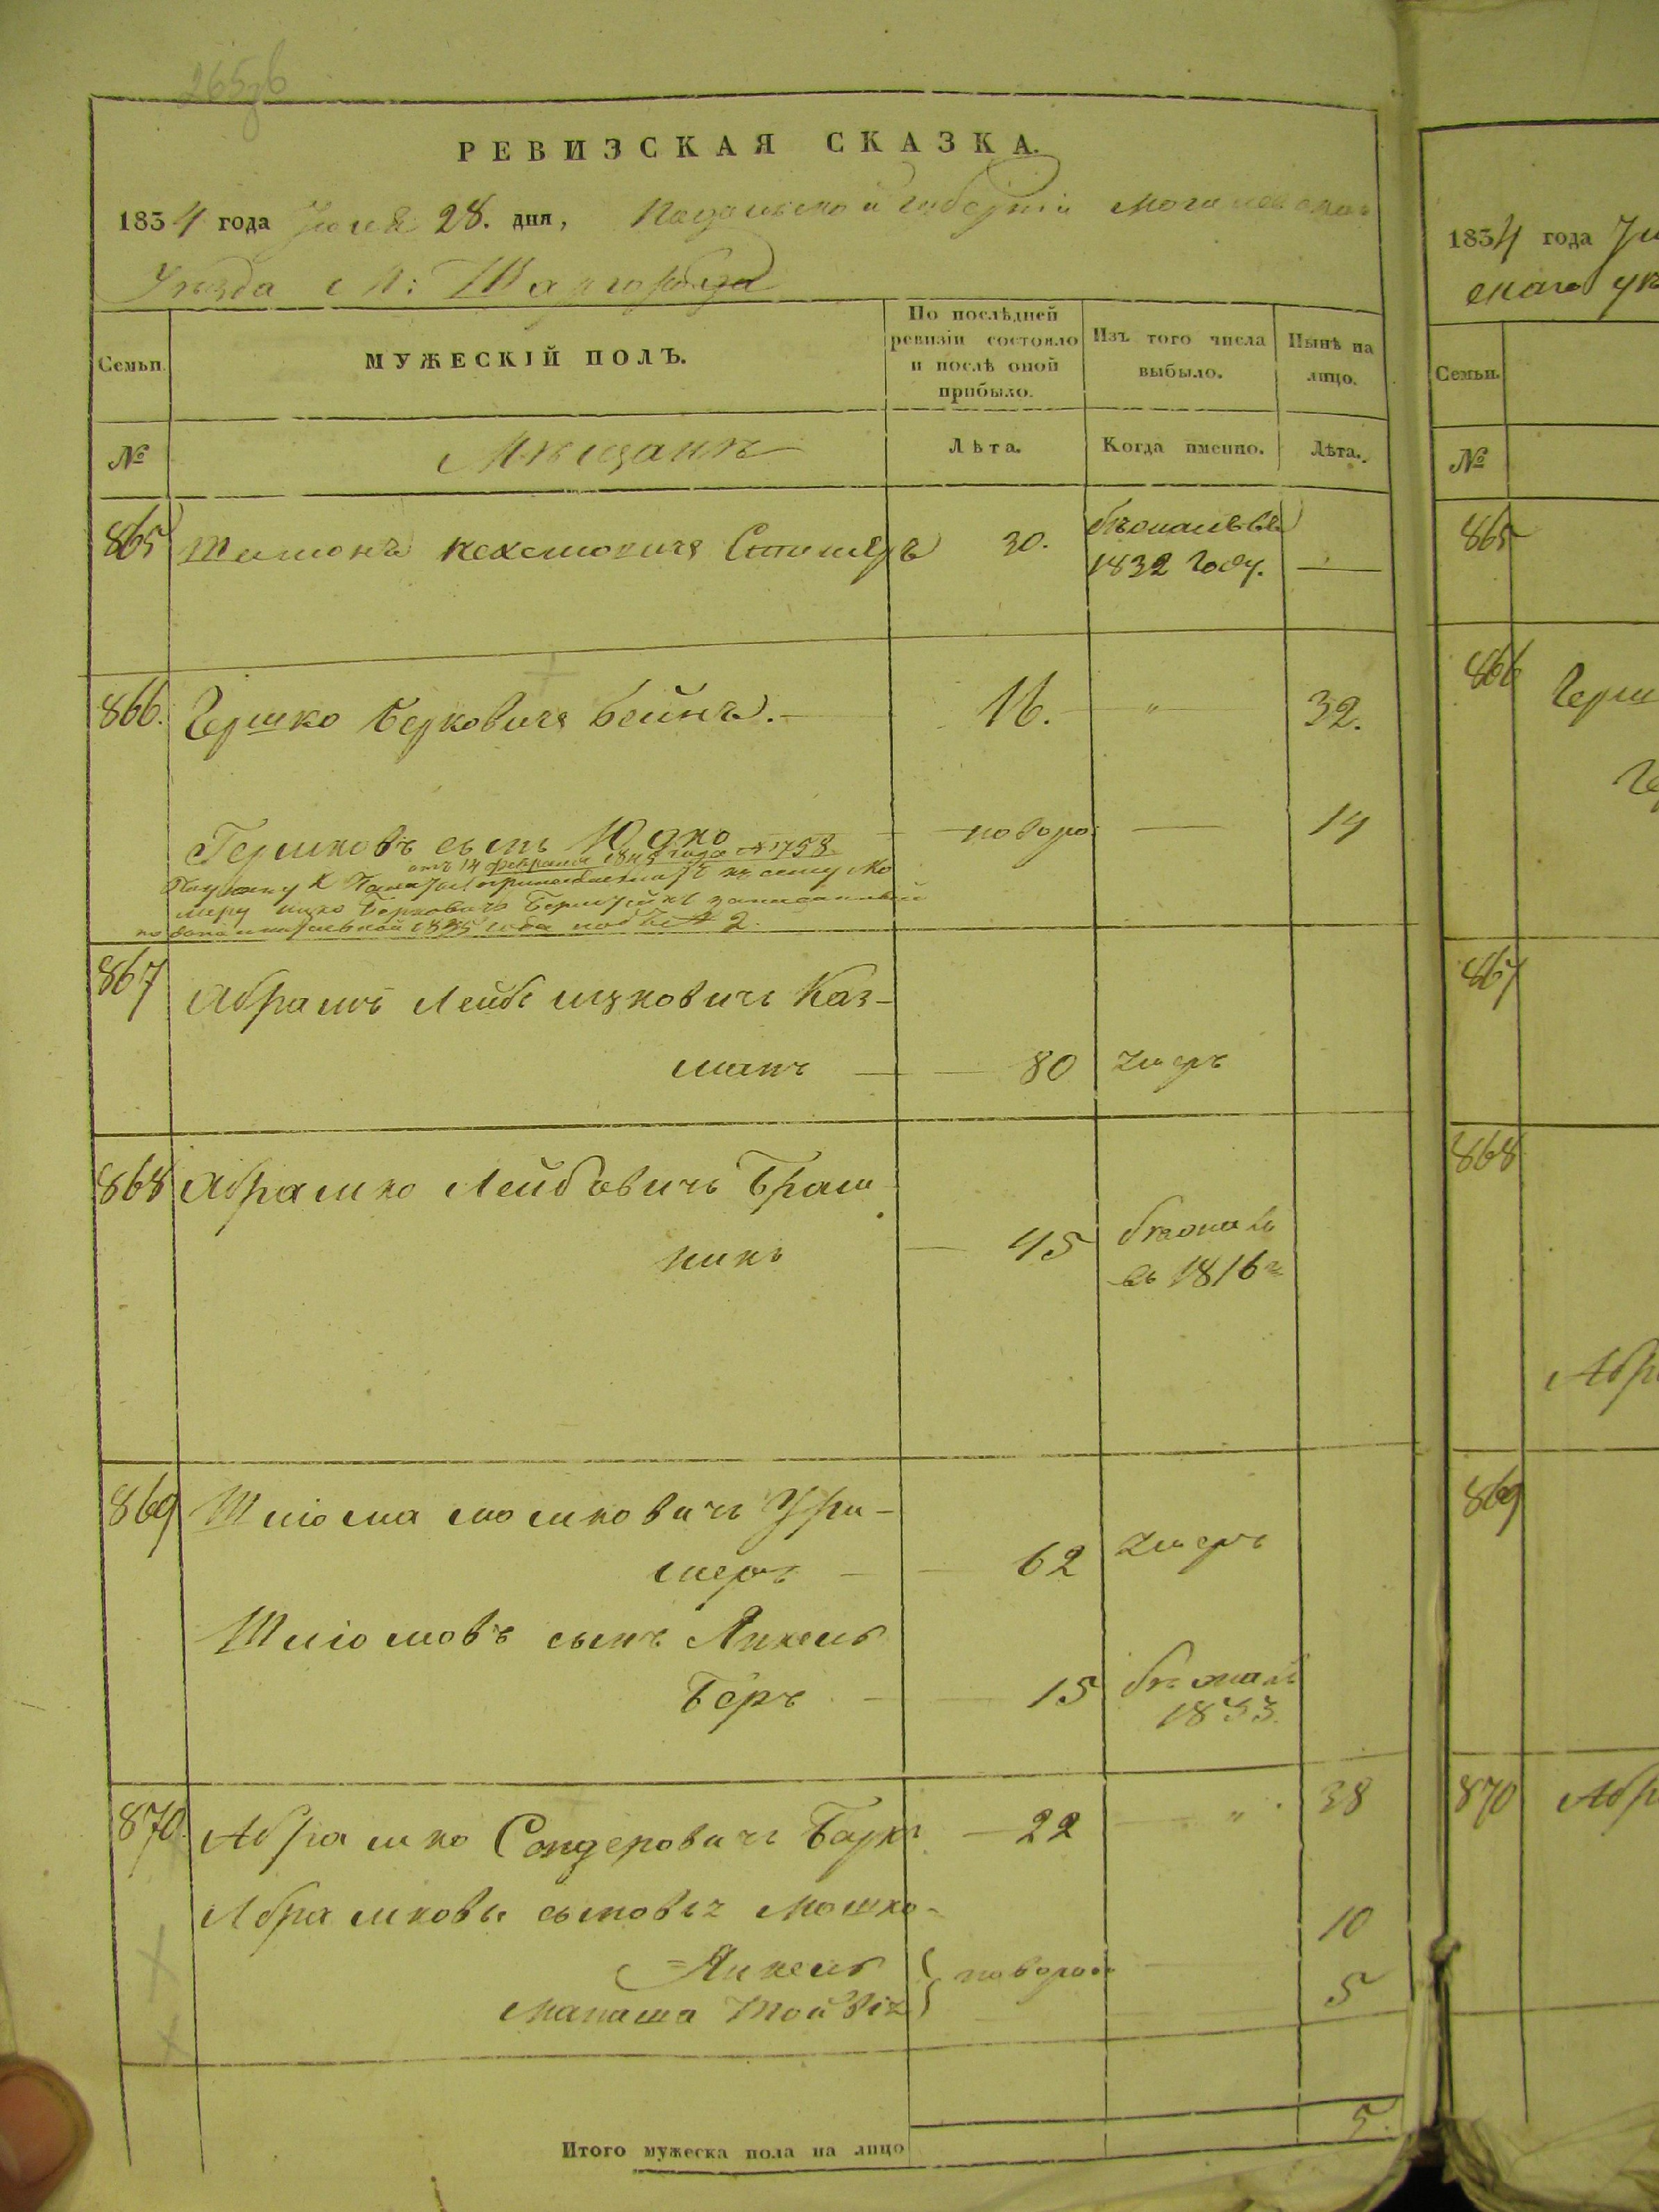 265зв
РЕВИЗСКАЯ СКАЗКА.
1834 года Іюля 28. дня, Подольской губерніи Могилевскаго
Уѣзда М: Шаргорода
Семьи.
МУЖЕСКІЙ ПОЛЪ.
По послѣдней ревизіи состояло и послѣ оной прибыло.
Изъ того числа выбыло.
Нынѣ на лицо.
№
Мѣщанъ
Лѣта.
Когда именно.
Лѣта.
865 Шимонъ Стиляръ 30. бѣжалъ въ
1832 году. —
866. Гершко Берковичъ Бейнъ. 16. „ 32.
Гершковъ сынъ Юдко новоро: — 14
отъ 14 февраля 1845 года № 1758
къ сему но
меру Ицко Берковичъ записанный
1835 года подъ № 2.
867 Абрамъ Лейба Ицковичъ Каз-
манъ — 80 умеръ
868 Абрамко Лейбовичъ Браш
никъ — 45 бѣжалъ
въ 1816 г
869 Шлюма Мошковичъ Ури-
меръ — 62 умеръ
Шлюмовъ сынъ Янкель
Беръ — 15 бѣжалъ
1833.
870. Абрамко Сендеровичъ Баркъ — 22 „ 38
Абрамковы сыновьѧ Мошко- 10
Янкель
новорож 5
Манаша
Итого мужеска пола на лицо 5.
1834 года Ію
скаго уѣ
Семьи.
№
865
866 Герш
Ге
867
868
Абра
869
870 Абр